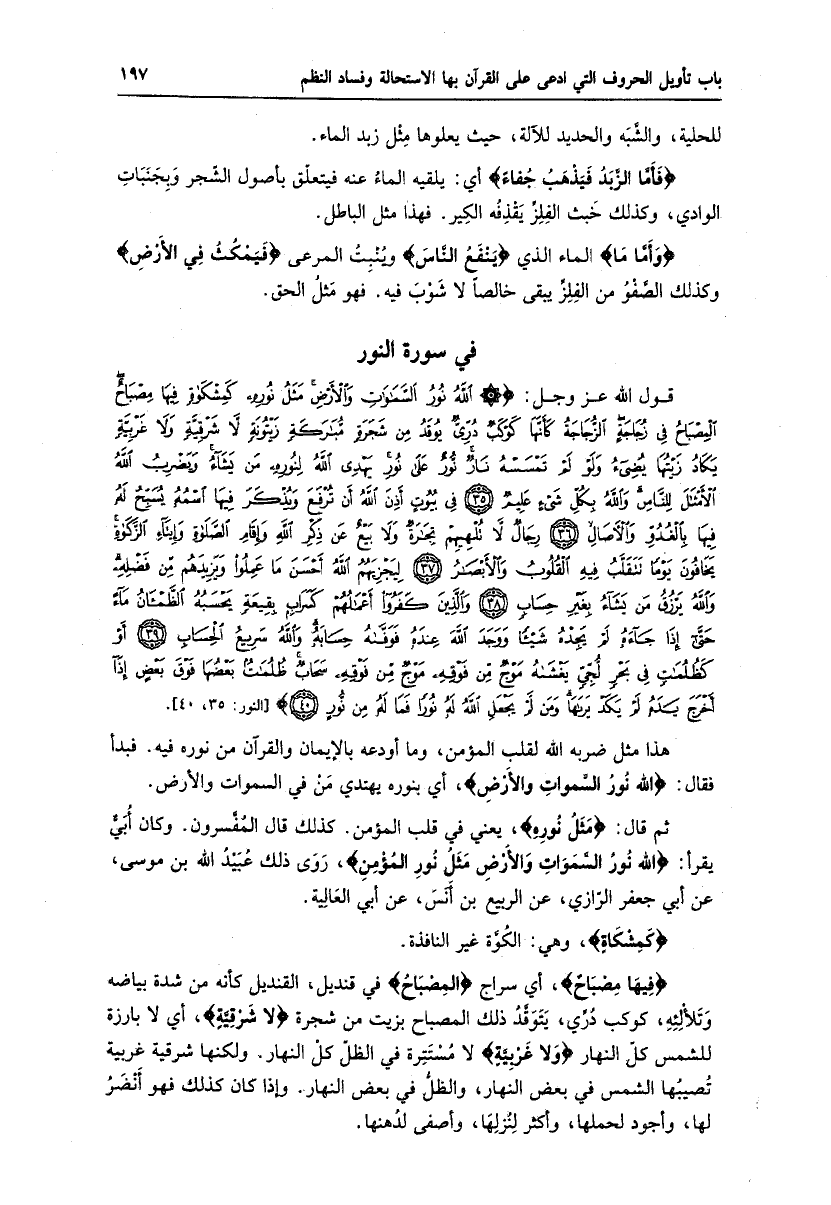 باب تأويل الحروف التي ادعى على القرآن بها الاستحالة وفساد النظم ١٩٧
للحلية، والشَّبَه والحديد للآلة، حيث يعلوها مِثْل زبد الماء.
﴿فَأَمَّا الزَّبَدُ فَيَذْهَبُ جُفاءَ﴾ أي: يلقيه الماءُ عنه فيتعلّق بأصول الشّجر وَبِجَنَبَاتِ
الوادي، وكذلك خَبث الفِلِزِّ يَقْذِفُه الكِير. فهذا مثل الباطل.
﴿وَأَمَّا مَا﴾ الماء الذي ﴿يَنْفَعُ النَّاسَ﴾ ويُنْبِتُ المرعى ﴿فَيَمْكُثُ فِي الأَرْضِ﴾
وكذلك الصَّفْوُ من الفِلِزِّ يبقى خالصاً لا شَوْبَ فيه. فهو مَثلُ الحق.
في سورة النور
قول الله عز وجل: ﴿۞ اللَّهُ نُورُ السَّمَٰوَٰتِ وَالْأَرْضِ ۚ مَثَلُ نُورِهِۦ كَمِشْكَوٰةٍ فِيهَا مِصْبَاحٌ ۖ
الْمِصْبَاحُ فِى زُجَاجَةٍ ۖ الزُّجَاجَةُ كَأَنَّهَا كَوْكَبٌ دُرِّىٌّ يُوقَدُ مِن شَجَرَةٍ مُّبَٰرَكَةٍ زَيْتُونَةٍ لَّا شَرْقِيَّةٍ وَلَا غَرْبِيَّةٍ
يَكَادُ زَيْتُهَا يُضِىٓءُ وَلَوْ لَمْ تَمْسَسْهُ نَارٌ ۚ نُّورٌ عَلَىٰ نُورٍ ۗ يَهْدِى اللَّهُ لِنُورِهِۦ مَن يَشَآءُ ۚ وَيَضْرِبُ اللَّهُ
الْأَمْثَٰلَ لِلنَّاسِ ۗ وَاللَّهُ بِكُلِّ شَىْءٍ عَلِيمٌ ٣٥ فِى بُيُوتٍ أَذِنَ اللَّهُ أَن تُرْفَعَ وَيُذْكَرَ فِيهَا اسْمُهُۥ يُسَبِّحُ لَهُۥ
فِيهَا بِالْغُدُوِّ وَالْءَاصَالِ ٣٦ رِجَالٌ لَّا تُلْهِيهِمْ تِجَٰرَةٌ وَلَا بَيْعٌ عَن ذِكْرِ اللَّهِ وَإِقَامِ الصَّلَوٰةِ وَإِيتَآءِ الزَّكَوٰةِ ۙ
يَخَافُونَ يَوْمًا تَتَقَلَّبُ فِيهِ الْقُلُوبُ وَالْأَبْصَٰرُ ٣٧ لِيَجْزِيَهُمُ اللَّهُ أَحْسَنَ مَا عَمِلُوا۟ وَيَزِيدَهُم مِّن فَضْلِهِۦ ۗ
وَاللَّهُ يَرْزُقُ مَن يَشَآءُ بِغَيْرِ حِسَابٍ ٣٨ وَالَّذِينَ كَفَرُوٓا۟ أَعْمَٰلُهُمْ كَسَرَابٍ بِقِيعَةٍ يَحْسَبُهُ الظَّمْـَٔانُ مَآءً
حَتَّىٰٓ إِذَا جَآءَهُۥ لَمْ يَجِدْهُ شَيْـًٔا وَوَجَدَ اللَّهَ عِندَهُۥ فَوَفَّىٰهُ حِسَابَهُۥ ۗ وَاللَّهُ سَرِيعُ الْحِسَابِ ٣٩ أَوْ
كَظُلُمَٰتٍ فِى بَحْرٍ لُّجِّىٍّ يَغْشَىٰهُ مَوْجٌ مِّن فَوْقِهِۦ مَوْجٌ مِّن فَوْقِهِۦ سَحَابٌ ۚ ظُلُمَٰتٌۢ بَعْضُهَا فَوْقَ بَعْضٍ إِذَآ
أَخْرَجَ يَدَهُۥ لَمْ يَكَدْ يَرَىٰهَا ۗ وَمَن لَّمْ يَجْعَلِ اللَّهُ لَهُۥ نُورًا فَمَا لَهُۥ مِن نُّورٍ ٤٠﴾ [النور: ٣٥، ٤٠].
هذا مثل ضربه الله لقلب المؤمن، وما أودعه بالإيمان والقرآن من نوره فيه. فبدأ
فقال: ﴿الله نُورُ السَّمواتِ والأَرْضِ﴾، أي بنوره يهتدي مَنْ في السموات والأرض.
ثم قال: ﴿مَثَلُ نُورِهِ﴾، يعني في قلب المؤمن. كذلك قال المُفَّسرون. وكان أُبَيٌّ
يقرأ: ﴿الله نُورُ السَّمَوَاتِ وَالأَرْضِ مَثَلُ نُورِ المُؤْمِنِ﴾، رَوَى ذلك عُبَيْدُ الله بن موسى،
عن أبي جعفر الرّازي، عن الربيع بن أَنَسَ، عن أبي العَالِية.
﴿كَمِشْكَاةٍ﴾، وهي: الكُوَّة غير النافذة.
﴿فِيهَا مِصْبَاحٌ﴾، أي سراج ﴿المِصْبَاحُ﴾ في قنديل، القنديل كأنه من شدة بياضه
وَتَلأْلُئِهِ، كوكب دُرِّي، يَتَوَقَّدُ ذلك المصباح بزيت من شجرة ﴿لا شَرْقِيَّةٍ﴾، أي لا بارزة
للشمس كلّ النهار ﴿وَلا غَرْبِيَّةٍ﴾ لا مُسْتَتِرة في الظلّ كلّ النهار. ولكنها شرقية غربية
تُصيبُها الشمس في بعض النهار، والظلُّ في بعض النهار. وإذا كان كذلك فهو أَنْضَرُ
لها، وأجود لحملها، وأكثر لِنُزلِهَا، وأصفى لدُهنها.